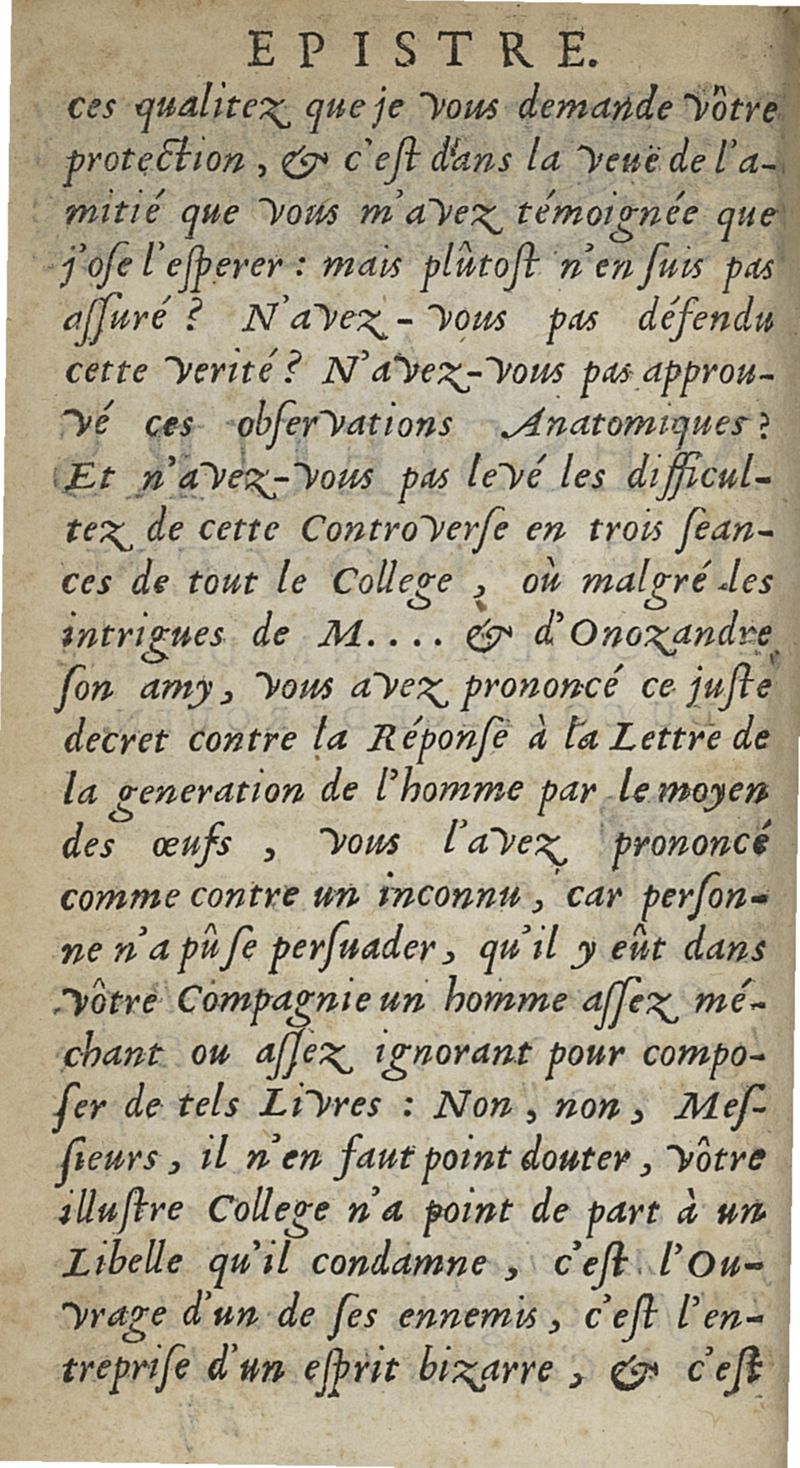 EPISTRE.
ces qualitez que je vous demande vôtre
protection, & c'eſt dans la veuë de l'a-
mitié que vous m'avez témoignée que
j'oſe l'eſperer : mais plûtoſt n'en ſuis pas
aſſuré ? N'avez-vous pas défendu
cette verité ? N'avez-vous pas approu-
vé ces obſervations Anatomiques ?
Et n'avez-vous pas levé les difficul-
tez de cette Controverſe en trois ſean-
ces de tout le College, où malgré les
intrigues de M.... & d'Onozandre
ſon amy, vous avez prononcé ce juſte
decret contre la Réponſe à la Lettre de
la generation de l'homme par le moyen
des œufs, vous l'avez prononcé
comme contre un inconnu, car perſon-
ne n'a pû ſe perſuader, qu'il y eût dans
vôtre Compagnie un homme aſſez mé-
chant ou aſſez ignorant pour compo-
ſer de tels Livres : Non, non, Meſ-
ſieurs, il n'en faut point douter, vôtre
illuſtre College n'a point de part à un
Libelle qu'il condamne, c'eſt l'Ou-
vrage d'un de ſes ennemis, c'eſt l'en-
trepriſe d'un eſprit bizarre, & c'eſt